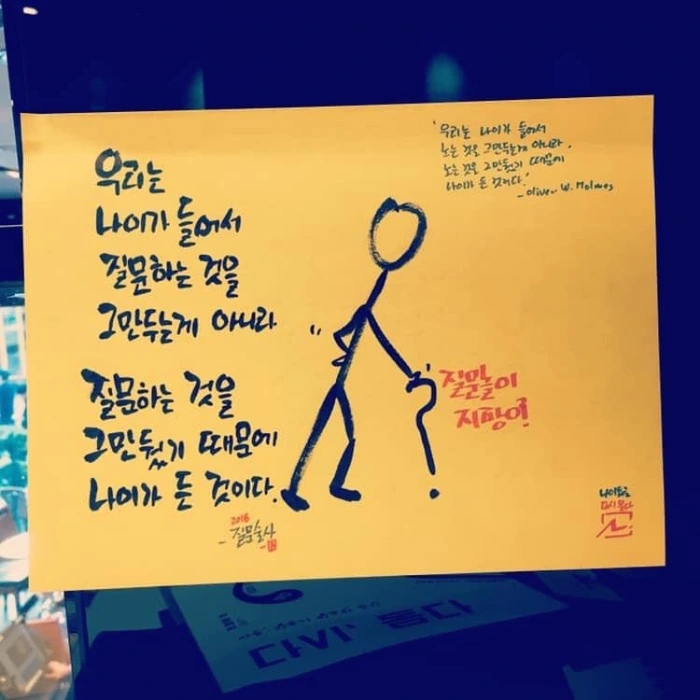 우리는
나이가 들어서
질문하는 것을
그만두는게 아니라
질문하는 것을
그만뒀기 때문에
나이가 든 것이다.
2016
- 질문술사 -
'우리는 나이가 들어서
노는 것을 그만두는게 아니라,
노는 것을 그만뒀기 때문에
나이가 든 것이다.'
- Oliver W. Holmes
질문놀이
지팡이?
다시 묻다
다시, 묻다